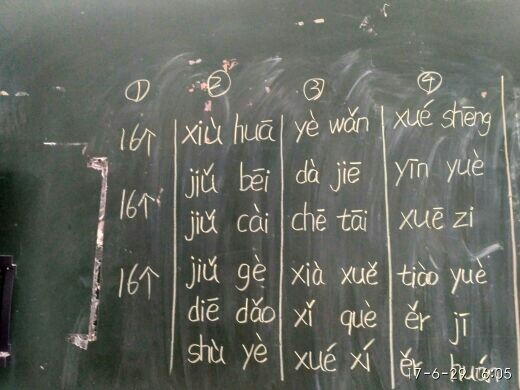 ① ② ③ ④
16个 xiù huā yè wǎn xué shēng
jiǔ bēi dà jiē yīn yuè
16个 jiǔ cài chē tāi xuē zi
16个 jiǔ gè xià xuě tiào yuè
diē dǎo xǐ què ěr jī
shù yè xué xí ěr
17-6-29 16:05